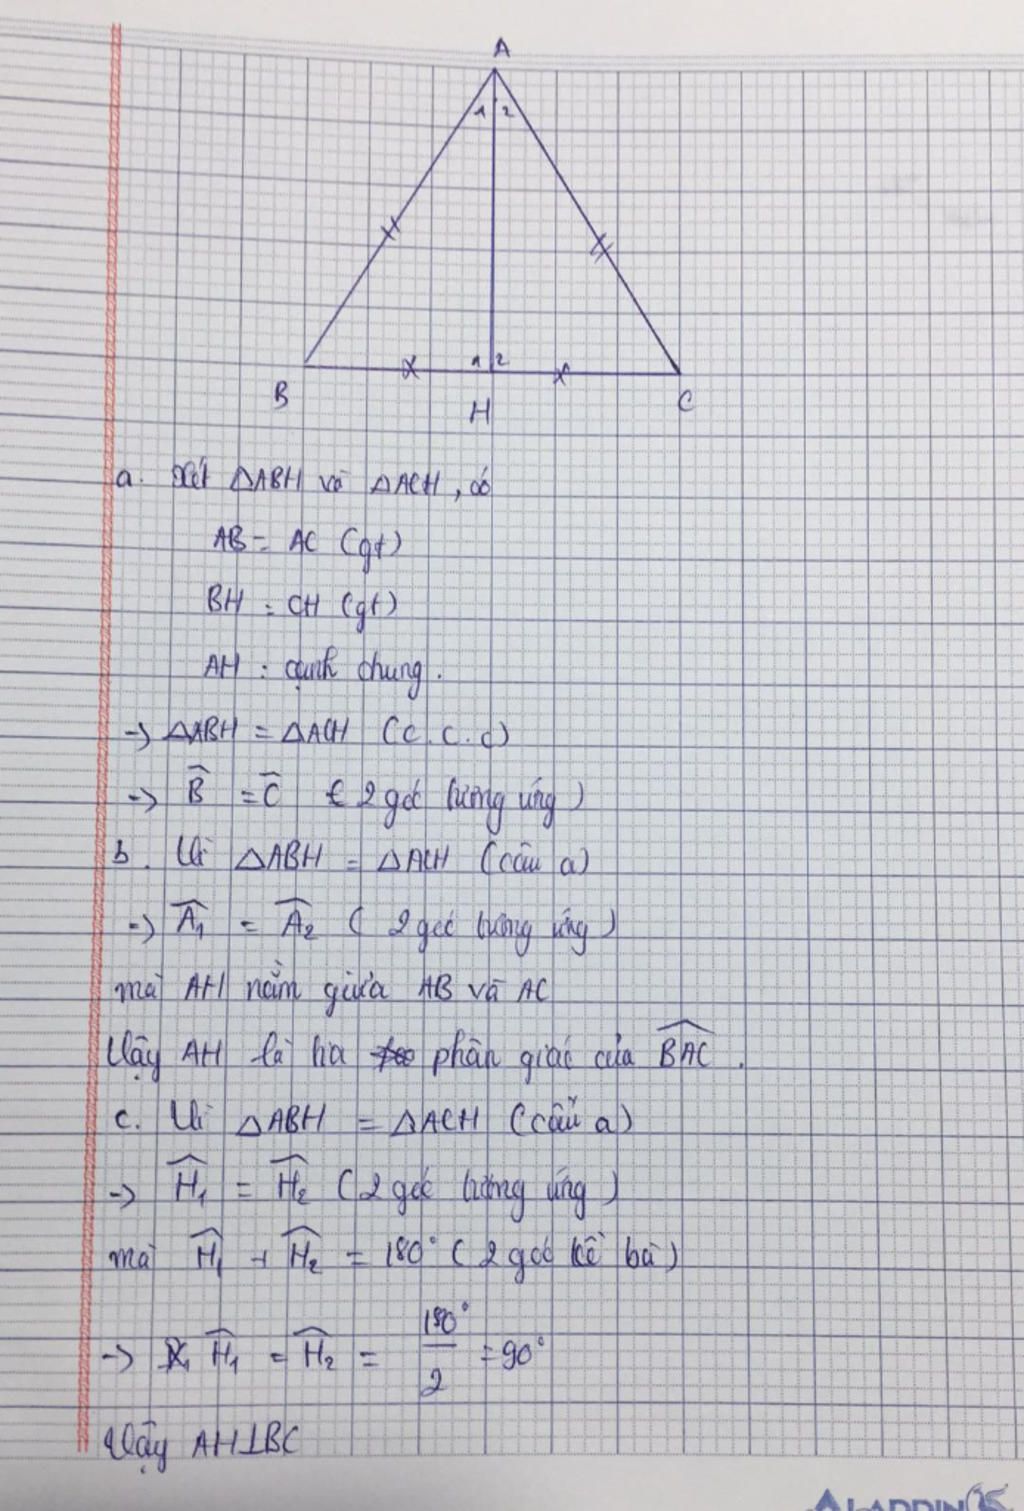 A
1 2
1 2
B
H
C
a. Xét ΔABH và ΔACH, có
AB = AC (gt)
BH = CH (gt)
AH : cạnh chung.
-> ΔABH = ΔACH (c.c.c)
-> B̂ = C̄ ( 2 góc tương ứng )
b. Vì ΔABH = ΔACH (câu a)
-> Â₁ = Â₂ ( 2 góc tương ứng )
mà AH nằm giữa AB và AC
Vậy AH là tia phân giác của BAC .
c. Vì ΔABH = ΔACH (câu a)
-> Ĥ₁ = Ĥ₂ ( 2 góc tương ứng )
mà Ĥ₁ + Ĥ₂ = 180° ( 2 góc kề bù )
-> Ĥ₁ = Ĥ₂ = 180°/2 = 90°
Vậy AH⊥BC